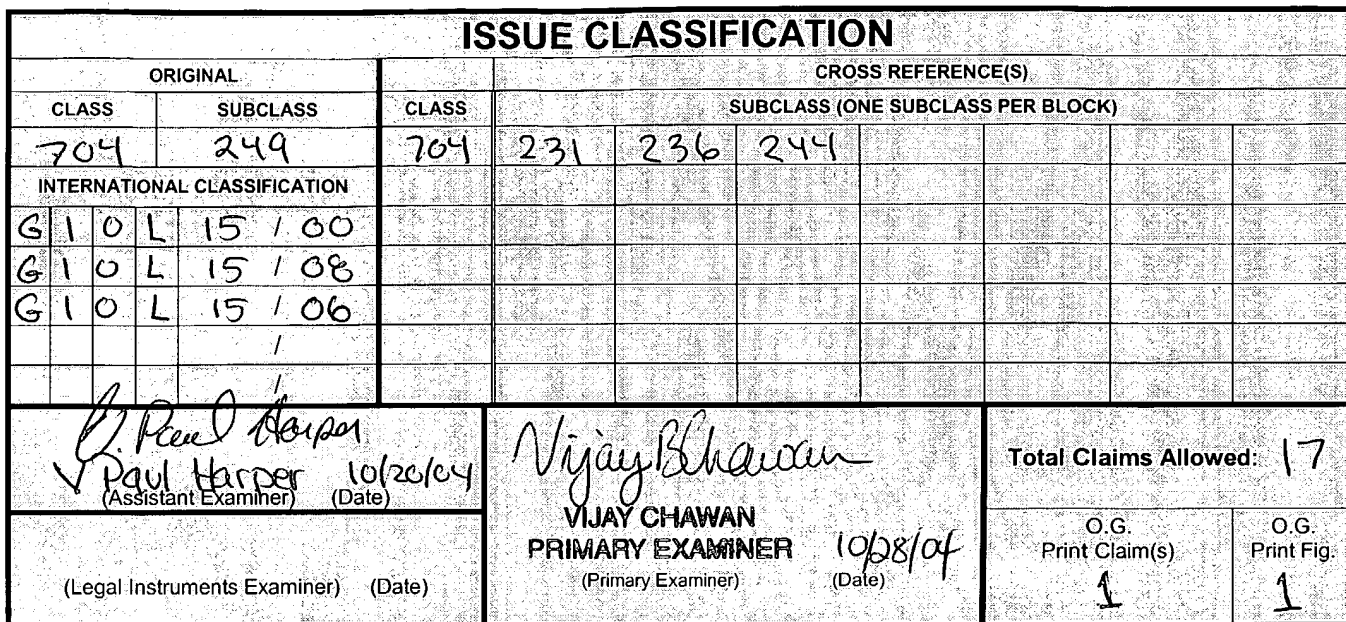 ISSUE CLASSIFICATION
ORIGINAL CROSS REFERENCE(S)
CLASS SUBCLASS CLASS SUBCLASS (ONE SUBCLASS PER BLOCK)
704 249 704 231 236 244
INTERNATIONAL CLASSIFICATION
G 1 0 L 15 / 00
G 1 0 L 15 / 08
G 1 0 L 15 / 06
/
/
Paul Harper
V Paul Harper 10/20/04
(Assistant Examiner) (Date)
(Legal Instruments Examiner) (Date)
Vijay B Chawan
VIJAY CHAWAN
PRIMARY EXAMINER 10/28/04
(Primary Examiner) (Date)
Total Claims Allowed: 17
O.G. Print Claim(s)
1
O.G. Print Fig.
1